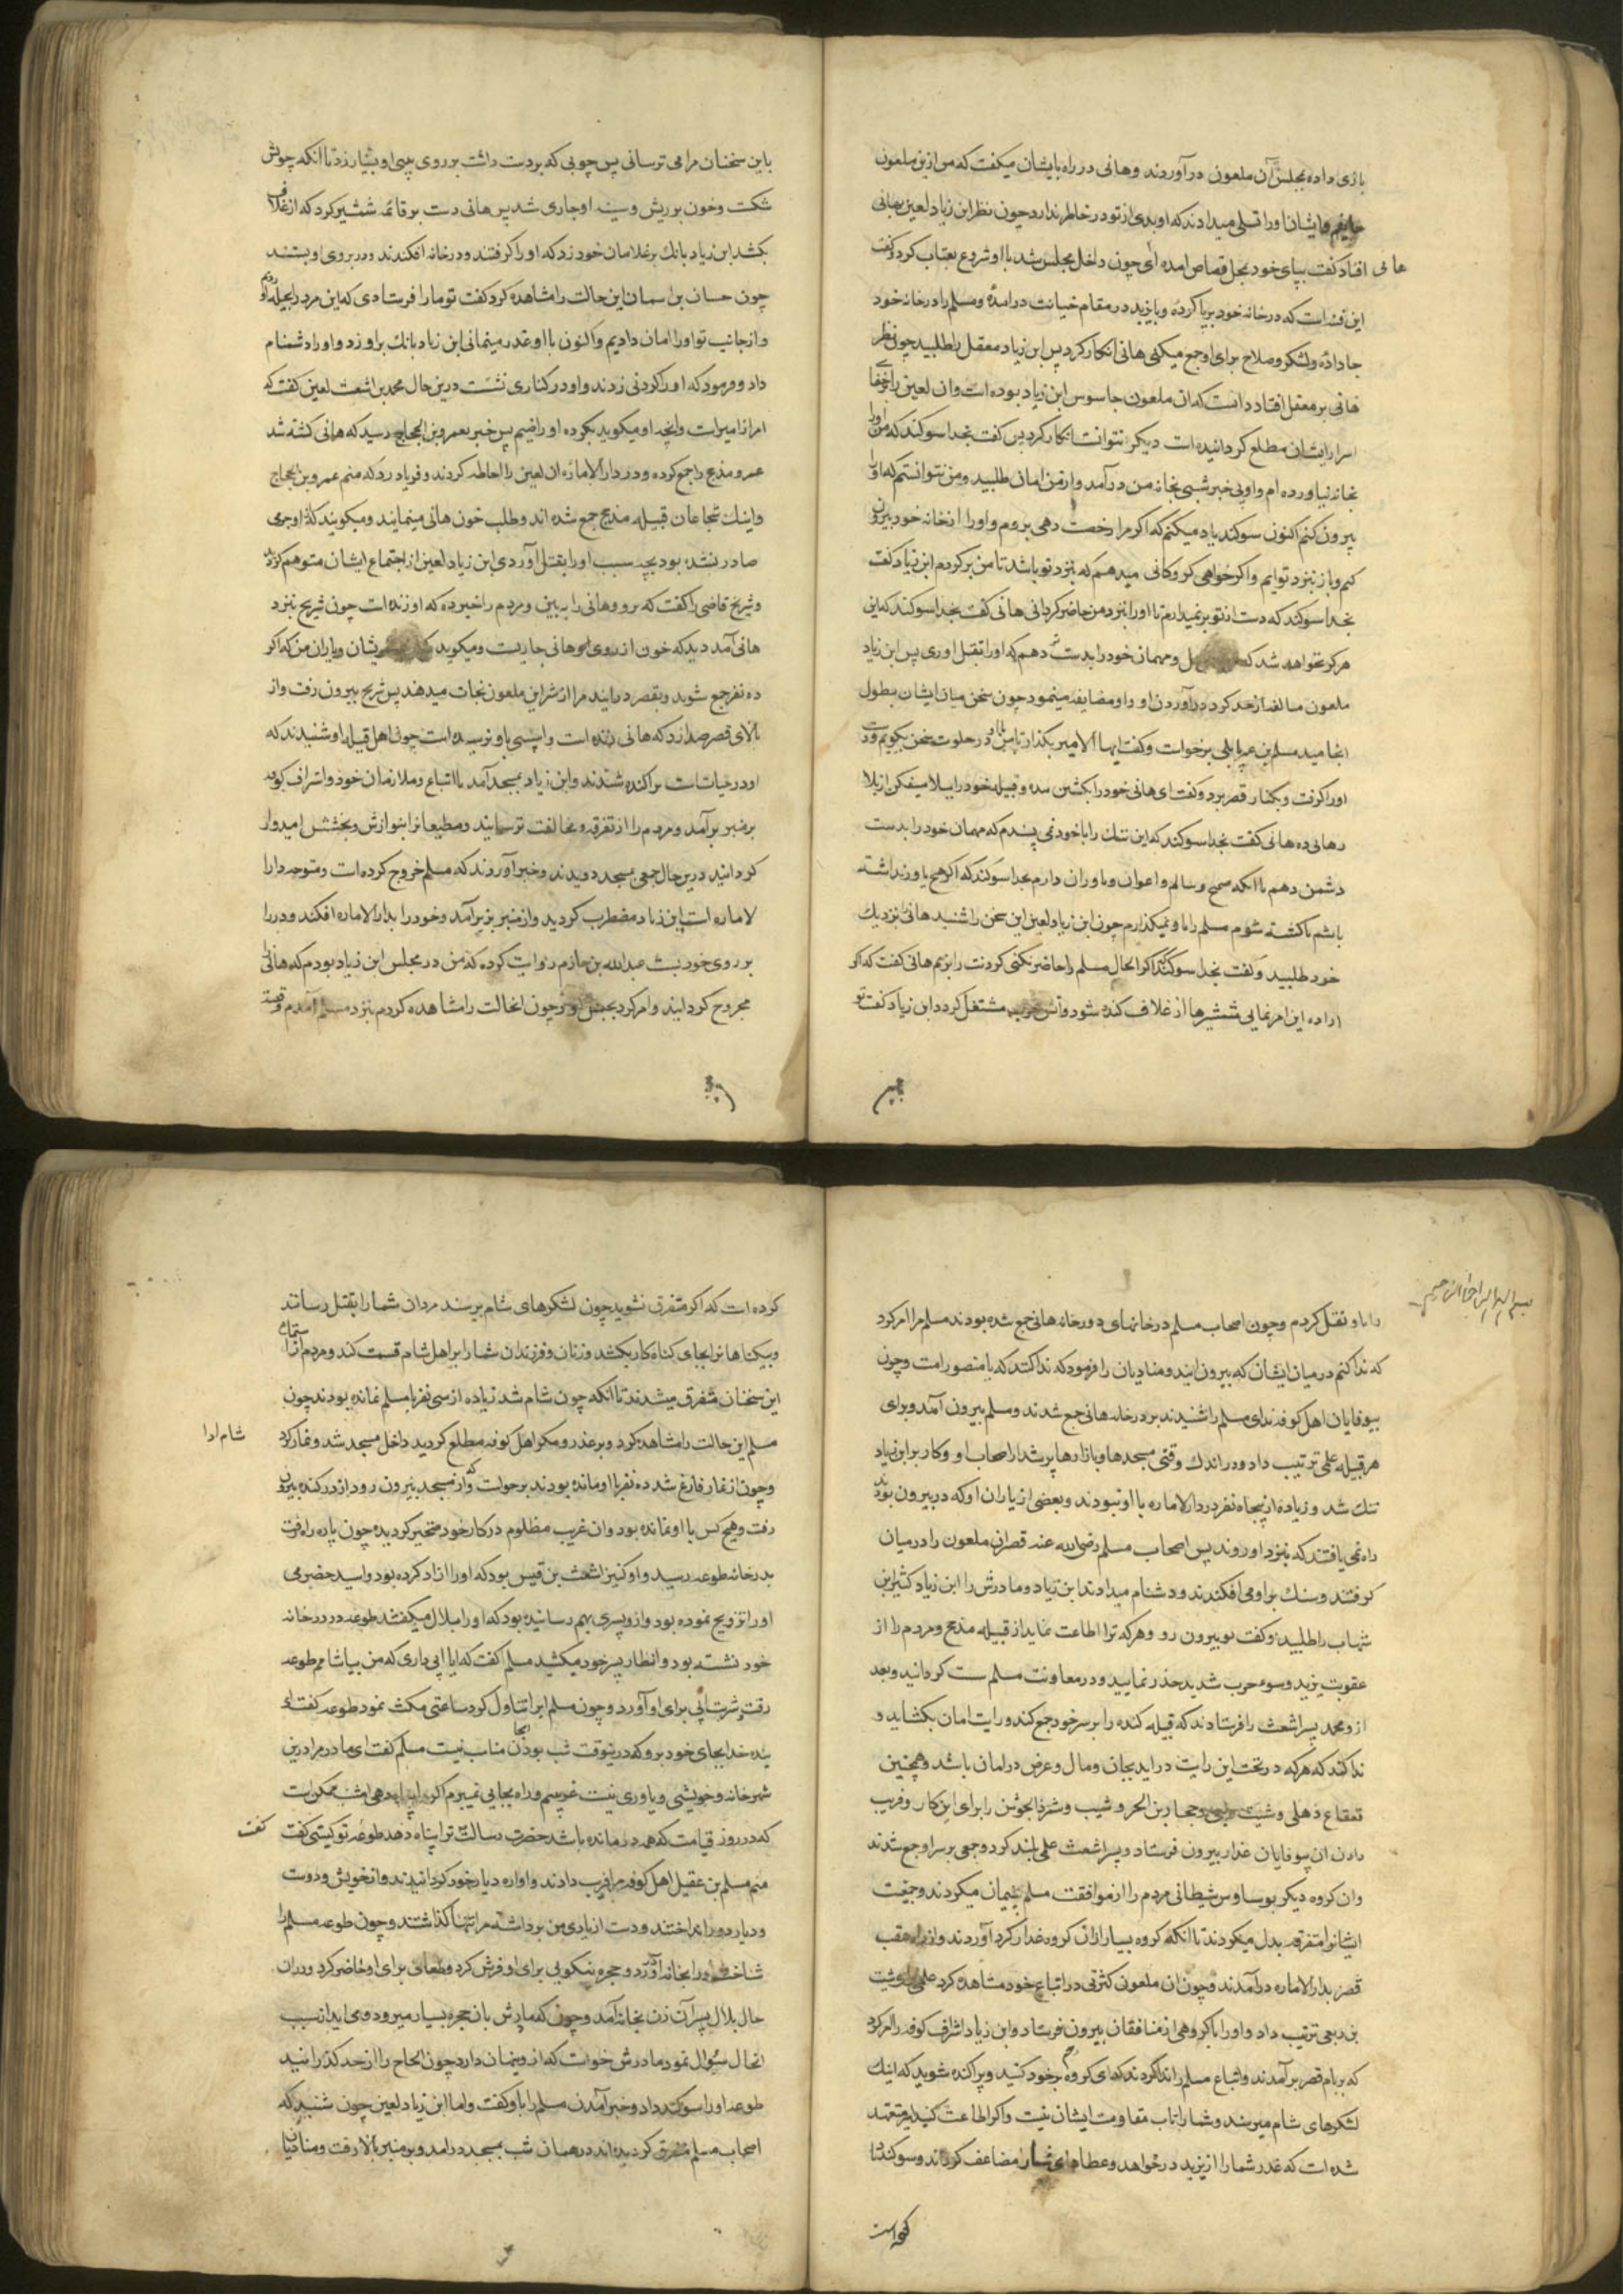 بازی داده بمجلس آن ملعون درآوردند وهانی در راه بایشان میکفت که من ازین ملعون
وایشان اورا تسلی میدادند که او بدی از تو در خاطر ندارد چون نظر ابن زیاد لعین بهانی
هانی
افتاد کفت بپای خود بمحل قصاص امده ای چون داخل مجلس شد با او شروع بعتاب کرد وکفت
این فتنه است که در خانه خود برپا کردۀ وبایزید در مقام خیانت درامدۀ ومسلم را در خانه خود
جا دادۀ ولشکر وصلاح برای او جمع میکنی هانی انکار کرد پس ابن زیاد معقل را طلبید چون نظر
هانی بر معقل افتاد دانست که ان ملعون جاسوس ابن زیاد بوده است وان لعین را
اسرار ایشان مطلع کردانیده است دیکر نتوانست انکار کرد پس کفت بخدا سوکند که من اورا
بخانه نیاورده ام واو بی خبر شبی بخانه من درآمد واز من امان طلبید ومن نتوانستم که اورا
بیرون کنم اکنون سوکند یاد میکنم که اکر مرا رخصت دهی بروم واورا از خانه خود بیرون
کنم وباز بنزد تو ایم واکر خواهی کروکانی میدهم که بنزد تو باشد تا من برکردم ابن زیاد کفت
بخدا سوکند که دست از تو برنمیدارم تا اورا بنزد من حاضر کردانی هانی کفت بخدا سوکند که این
هرکز نخواهد شد که ومهمان خود را بدست دهم که اورا بقتل اوری پس ابن زیاد
ملعون مبالغه از حد کرد درآوردن او واو مضایقه مینمود چون سخن میان ایشان بطول
انجامید مسلم بن عمر باهلی برخواست وکفت ایها الامیر بکذار تا من با او در خلوت سخن بکویم ودست
اورا کرفت وبکنار قصر برد وکفت ای هانی خود را بکشتن مده وقبیله خود را ببلا میفکن از بلا
رهائی ده هانی کفت بخدا سوکند که این ننک را با خود نمی پسندم که مهمان خود را بدست
دشمن دهم با انکه صحیح وسالم واعوان ویاوران دارم بخدا سوکند که اکر هیچ یاور نداشته
باشم تا کشته شوم مسلم را باو نمیکذارم چون ابن زیاد لعین این سخن را شنید هانی را نزدیک
خود طلبید وکفت بخدا سوکند که اکر الحال مسلم را حاضر نکنی کردنت را بزنم هانی کفت که اکر
اراده این امر نمایی شمشیرها از غلاف کنده شود وآتش حرب مشتعل کردد ابن زیاد کفت تو
باین سخنان مرا می ترسانی پس چوبی که بر دست داشت بر روی وبینی او بسیار زد تا آنکه چوبش
شکست وخون بر ریش وسینه او جاری شد پس هانی دست بر قائمه شمشیر کرد که از غلاف
بکشد ابن زیاد بانک بر غلامان خود زد که اورا کرفتند ودر خانه افکندند ودر بروی او بستند
چون حسان بن اسمان این حالت را مشاهده کرد کفت تو مارا فرستادی که این مرد را بحیله
واز جانب تو اورا امان دادیم واکنون با او غدر مینمائی ابن زیاد بانک براو زد واورا دشنام
داد وفرمود که اورا کردنی زدند واو در کناری نشست درین حال محمد بن اشعث لعین کفت که
امر از امیر است وانچه او میکوید بکرده او راضیم پس خبر بعمرو بن الحجاج رسید که هانی کشته شد
عمرو مذحج را جمع کرده ودر دار الاماره ان لعین را احاطه کردند وفریاد زد که منم عمرو بن الحجاج
واینک شجاعان قبیله مذحج جمع شده اند وطلب خون هانی مینمایند ومیکویند که از او جرمی
صادر نشده بود بچه سبب اورا بقتل آوردی ابن زیاد لعین از اجتماع ایشان متوهم کردید
وشریح قاضی را کفت که برو وهانی را به بین ومردم را خبر ده که او زنده است چون شریح بنزد
هانی آمد دید که خون از روی هانی جاریست ومیکوید خویشان ویاران من که اکر
ده نفر جمع شوید وبقصر درایند مرا از شر این ملعون نجات میدهند پس شریح بیرون رفت واز
بالای قصر صدا زد که هانی زنده است واسیبی باو نرسیده است چون اهل قبیله او شنیدند که
او در حیات است پراکنده شدند وابن زیاد بمسجد آمد با اتباع وملازمان خود واشراف کوفه
بر منبر برآمد ومردم را از تفرقه ومخالفت ترسانید ومطیعانرا بنوازش وبخشش امیدوار
کردانید درین حال جمعی بمسجد دویدند وخبر آوردند که مسلم خروج کرده است ومتوجه دارا
لاماره است پس ابن زیاد مضطرب کردید واز منبر بزیر آمد وخود را بدار الاماره افکند ودر را
بر روی خود ببست عبدالله بن حازم روایت کرده که من در مجلس ابن زیاد بودم که هانی
مجروح کردانید وامر کرد بحبس او وچون انحالت را مشاهده کردم بنزد مسلم آمدم وقصه
را باو نقل کردم وچون اصحاب مسلم در خانهای دور خانه هانی جمع شده بودند مسلم مرا امر کرد
که ندا کنم در میان ایشان که بیرون ایند ومنادیان را فرمود که ندا کنند که یا منصور امت وچون
بیوفایان اهل کوفه ندای مسلم را شنیدند بر در خانه هانی جمع شدند ومسلم بیرون آمد وبرای
هر قبیله علمی ترتیب داد ودر اندک وقتی مسجدها وبازارها پر شد از اصحاب او وکار بر ابن زیاد
تنک شد وزیاده از پنجاه نفر در دار الاماره با او نبودند وبعضی از یاران او که در بیرون بودند
راه نمی یافتند که بنزد او روند پس اصحاب مسلم رضی الله عنه قصر ان ملعون را در میان
کرفتند وسنک براو می افکندند ودشنام میدادند ابن زیاد ومادرش را ابن زیاد کثیر ابن
شهاب را طلبید وکفت تو بیرون رو وهرکه ترا اطاعت نماید از قبیله مذحج ومردم را از
عقوبت یزید وسوء حرب شدید حذر نمایید ودر معاونت مسلم سست کردانید وبعد
از و محمد پسر اشعث را فرستادند که قبیله کنده را بر سر خود جمع کند ورایت امان بکشاید و
ندا کند که هرکه در تحت این رایت دراید بجان ومال وعرض در امان باشد وهمچنین
قعقاع ذهلی وشبث ربعی وحجار بن الحر وشیب وشمر ذالجوشن را برای این کار وفریب
دادن ان بیوفایان غدار بیرون فرستاد وپسر اشعث علمی بلند کرد وجمعی بر سر او جمع شدند
وان کروه دیکر بوساوس شیطانی مردم را از موافقت مسلم پشیمان میکردند وجمعیت
ایشانرا بتفرقه بدل میکردند تا انکه کروه بسیار از ان کروه غدار کرد آوردند واز راه عقب
قصر بدار الاماره درآمدند وچون ان ملعون کثرتی در اتباع خود مشاهده کرد علمی برای شبث
بن ربعی ترتیب داد واورا با کروهی از منافقان بیرون فرستاد وابن زیاد اشراف کوفه را امر کرد
که بر بام قصر برآمدند واتباع مسلم را ندا کردند که ای کروه رحم بر خود کنید وپراکنده شوید که اینک
لشکرهای شام میرسند وشمارا تاب مقاومت ایشان نیست واکر اطاعت کنید امیر متعهد
شده است که عذر شمارا از یزید درخواهد وعطاهای شمارا مضاعف کرداند وسوکند
کرده است که اکر متفرق نشوید چون لشکرهای شام برسند مردان شمارا بقتل رسانند
وبیکناهانرا بجای کناه کار بکشد وزنان وفرزندان شمارا بر اهل شام قسمت کند ومردم از استماع
این سخنان متفرق میشدند تا آنکه چون شام شد زیاده از سی نفر با مسلم نمانده بودند چون
مسلم این حالت را مشاهده کرد وبر غدر ومکر اهل کوفه مطلع کردید داخل مسجد شد ونماز کرد
شام ادا
وچون از نماز فارغ شد ده نفر با او مانده بودند برخواست که از مسجد بیرون رود از در کنده بیرون
رفت وهیچ کس با او نمانده بود وان غریب مظلوم در کار خود متحیر کردیده چون پاره راه رفت
بدر خانه طوعه رسید واو کنیز اشعث بن قیس بود که اورا ازاد کرده بود واسید حضرمی
اورا تزویج نموده بود وازو پسری بهم رسانیده بود که اورا بلال میکفتند طوعه در در خانه
خود نشسته بود وانتظار پسر خود میکشید مسلم کفت که ایا ابی داری که من بیاشامم طوعه
رفت وشربت ابی برای او آورد وچون مسلم ابرا تناول کرد ساعتی مکث نمود طوعه کفت ای
بنده خدا بجای خود برو که درینوقت شب بودن اینجا مناسب نیست مسلم کفت ای مادر مرا درین
شهر خانه وخویشی ویاوری نیست غریبم وراه بجایی نمیبرم اکر مرا پناه دهی امشب ممکن است
که در روز قیامت که همه درمانده باشند حضرت رسالت ترا پناه دهد طوعه کفت تو کیستی کفت
کفت
منم مسلم بن عقیل اهل کوفه مرا فریب دادند واواره دیار خود کردانیدند واز خویش ودوست
ودیار دور انداختند ودست از یاری من برداشته مرا تنها کذاشتند وچون طوعه مسلم را
شناخت اورا بخانه آورد وحجره نیکویی برای او فرش کرد وطعامی برای او حاضر کرد ودران
حال بلال پسر آن زن بخانه آمد وچون که مادرش بان حجره بسیار میرود ومی اید از سبب
انحال سئوال نمود مادرش خواست که از و پنهان دارد چون الحاح را از حد کذرانید
طوعه اورا سوکند داد وخبر آمدن مسلم را باو کفت واما ابن زیاد لعین چون شنید که
اصحاب مسلم متفرق کردیده اند در همان شب بمسجد درامد وبر منبر بالا رفت ومنادیان